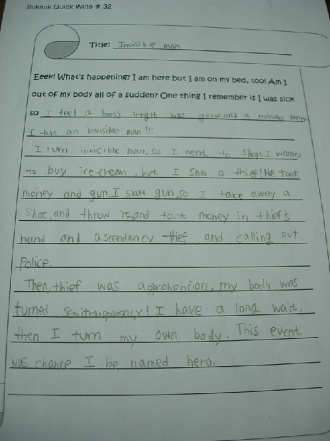 Buksuk Quick Write # 32
Title: Invisible man
Eeek! What's happening? I am here but I am on my bed, too! Am I
out of my body all of a sudden? One thing I remember is I was sick
so I feel a body length was gone and a
I turn an invisible man!!
I turn invisible man, so I went to shop. I wanted
to buy ice-cream, but I saw a thief! He took
money and gun. I saw gun, so I take away a
shot, and throw it, and took money in thief's
hand and ascendancy thief and calling out
Police.
Then, thief was apprehension, my body was
turned semitransparency! I have a long wait,
then I turn my own body. This event
was chance I be named hero.